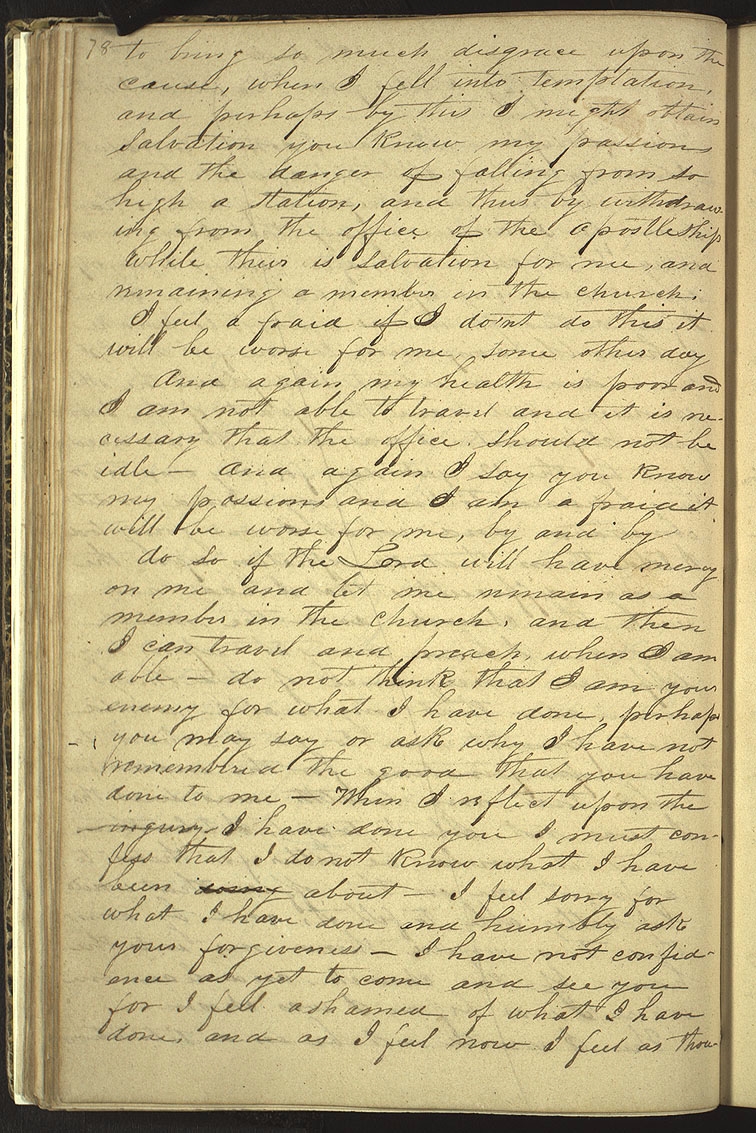 78 to bring so much disgrace upon the
cause, when I fell into temptation,
and perhaps by this I might obtain
Salvation you know my passions
and the danger of falling from so
high a station, and thus by withdraw-
ing from the office of the apostleship
while their is salvation for me, and
remaining a member in the church.
I feel a fraid if I dont do this it
will be worse for me, some other day
And again my health is poor and
I am not able to travel and it is ne-
cessary that the office should not be
idle — And again I say you know
my passions and I am a fraid it
will be worse for me, by and by
do so if the Lord will have mercy
on me and let me remain as a
member in the church, and then
I can travel and preach, when I am
able — do not think that I am your
enemy for what I have done, perhaps
you may say or ask why I have not
remembered the good that you have
done to me — When I reflect upon the
ingury I have done you I must con-
fess that I do not know what I have
been doing about — I feel sorry for
what I have done and humbly ask
your forgiveness — I have not confid-
ence as yet to come and see you
for I feel ashamed of what I have
done, and as I feel now I feel as thou-